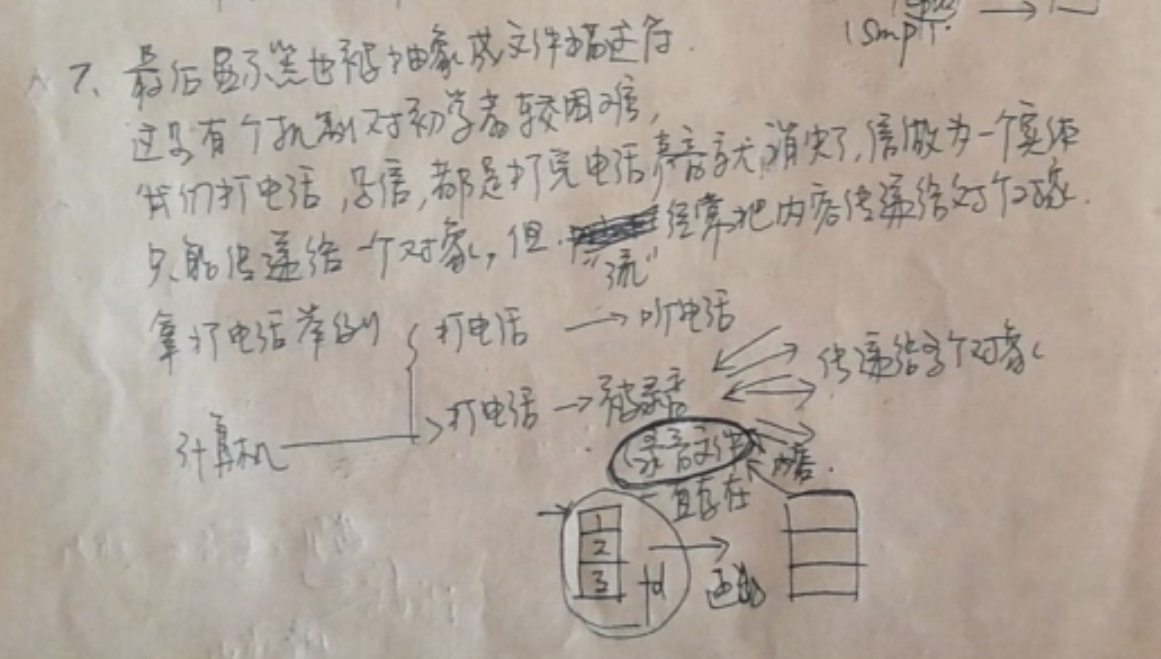 7、最后显示器也被抽象成文件描述符.
这里有个机制对初学者较困难,
我们打电话,写信,都是打完电话声音就消失了,信做为一个实体
只能传递给一个对象,但 经常把内容传递给多个对象.
"流"
拿打电话举例 打电话 → 听电话
打电话 → 被录音 传递给多个对象
计算机
录音文件 内容.
一直存在
1
2
3 fd